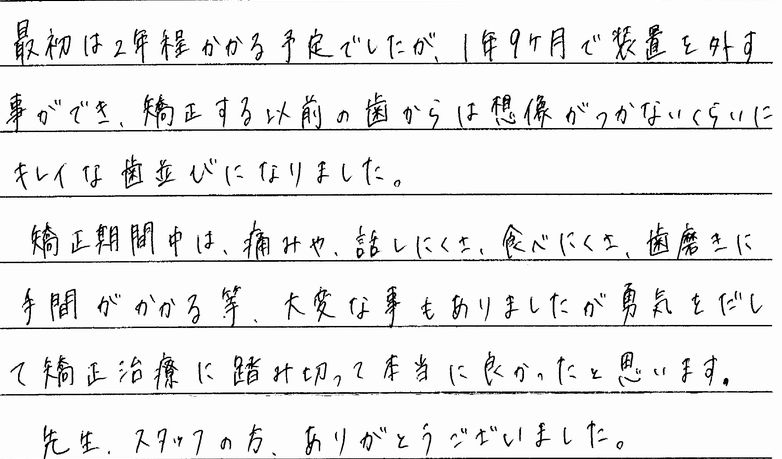 最初は2年程かかる予定でしたが、1年9ケ月で装置を外す
事ができ、矯正する以前の歯からは想像がつかないくらいに
キレイな歯並びになりました。
矯正期間中は、痛みや、話しにくさ、食べにくさ、歯磨きに
手間がかかる等、大変な事もありましたが勇気をだし
て矯正治療に踏み切って本当に良かったと思います。
先生、スタッフの方、ありがとうございました。